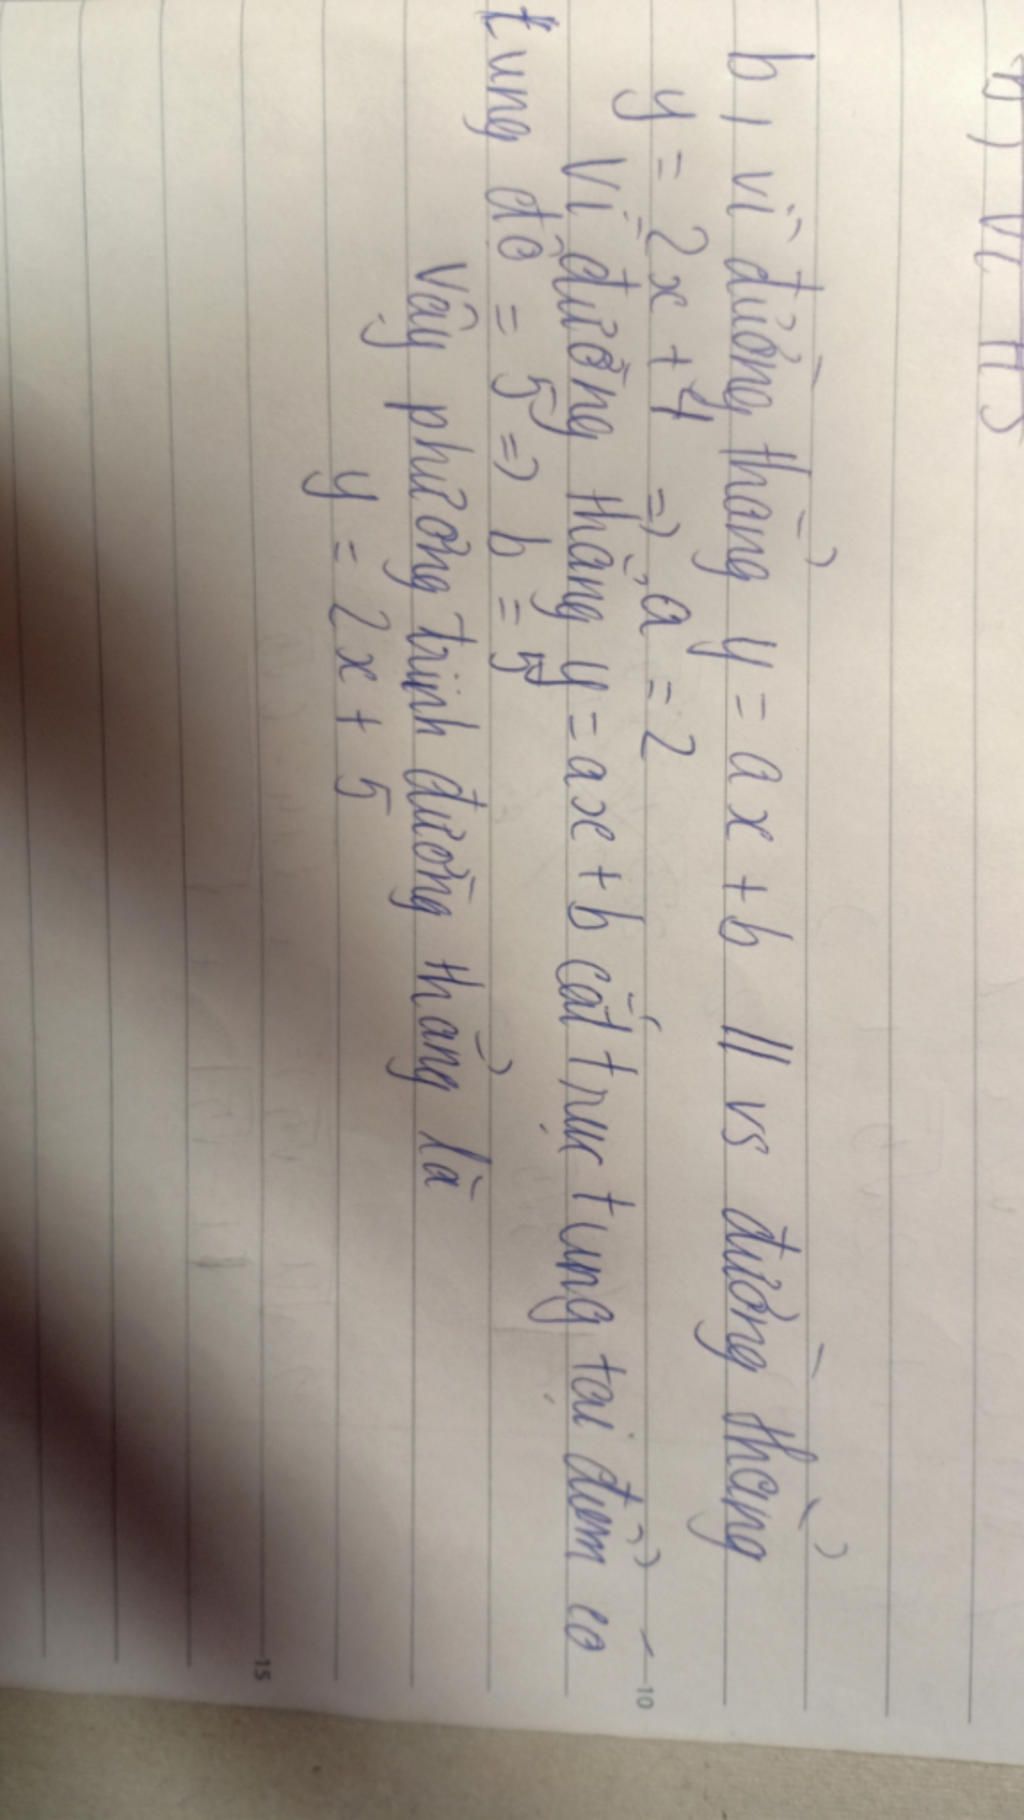 b, vì đường thẳng y = ax + b // vs đường thẳng
y = 2x + 4 => a = 2
Vì đường thẳng y = ax + b cắt trục tung tại điểm có
tung độ = 5 => b = 5
Vậy phương trình đường thẳng là
y = 2x + 5
10
15